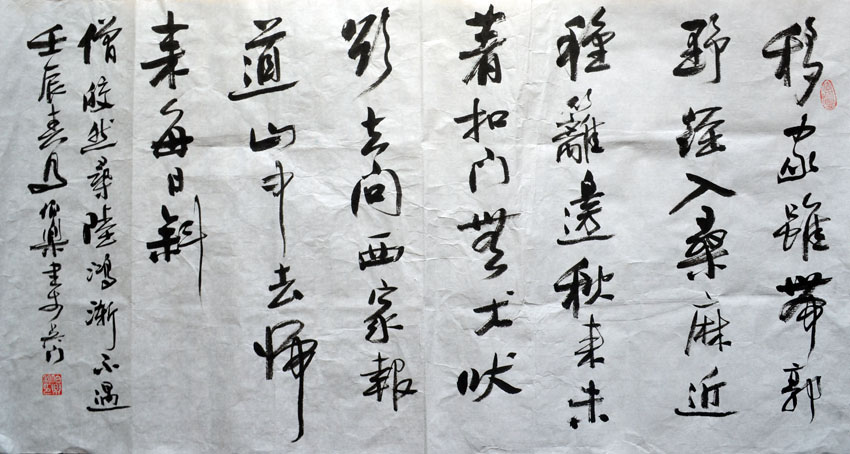 移家雖帶郭
野徑入桑麻近
種籬邊秋來未
着扣门無犬吠
欲去问西家報
道山中去歸
来每日斜
僧皎然尋陸鴻漸不遇
壬辰春月伯樂書於